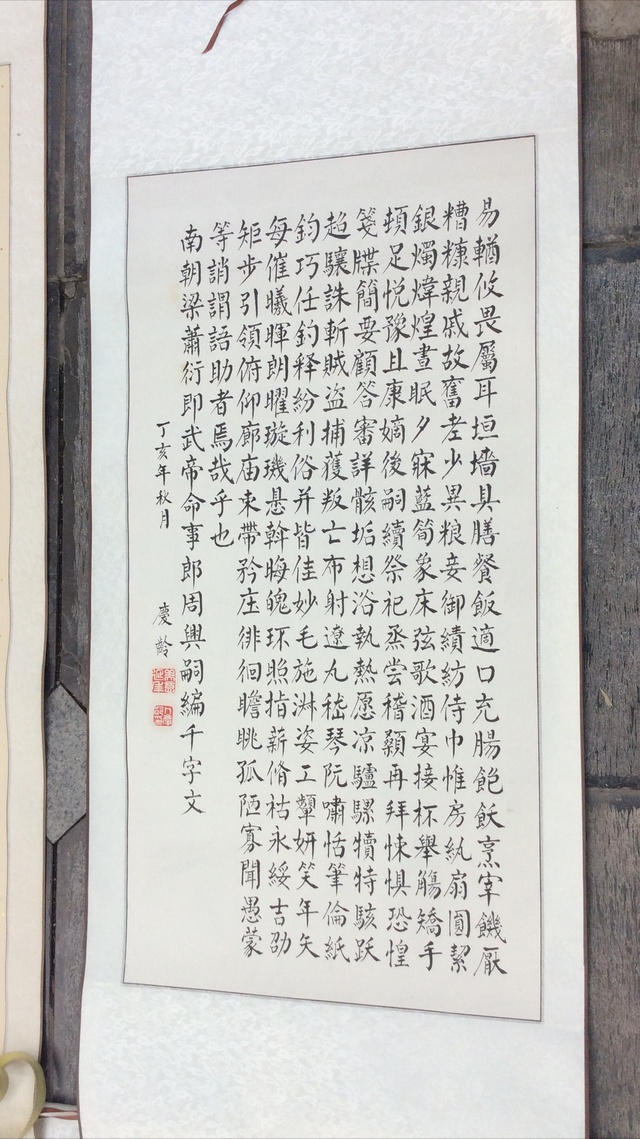 易輶攸畏屬耳垣墻具膳餐飯適口充腸飽飫烹宰饑厭
糟糠親戚故奮老少異粮妾御績紡侍巾惟房紈扇圓絜
銀燭煒煌晝眠夕寐藍筍象床弦歌酒宴接杯舉觴矯手
頓足悅豫且康嫡後嗣續祭祀蒸尝稽顙再拜悚懼恐惶
箋牒簡要顧答審詳骸垢想浴執熱愿凉驢騾犢特駭跃
超驤誅斬賊盗捕獲叛亡布射遼丸嵇琴阮嘯恬筆倫紙
鈞巧任釣释紛利俗并皆佳妙毛施淋姿工顰妍笑年矢
每催曦暉朗曜璇璣悬斡晦魄环照指薪脩祜永綏吉劭
矩步引領俯仰廊庙束帶矜庄徘徊瞻眺孤陋寡聞愚蒙
等誚謂語助者焉哉乎也
南朝梁蕭衍即武帝命事郎周興嗣編千字文
丁亥年秋月 慶齡